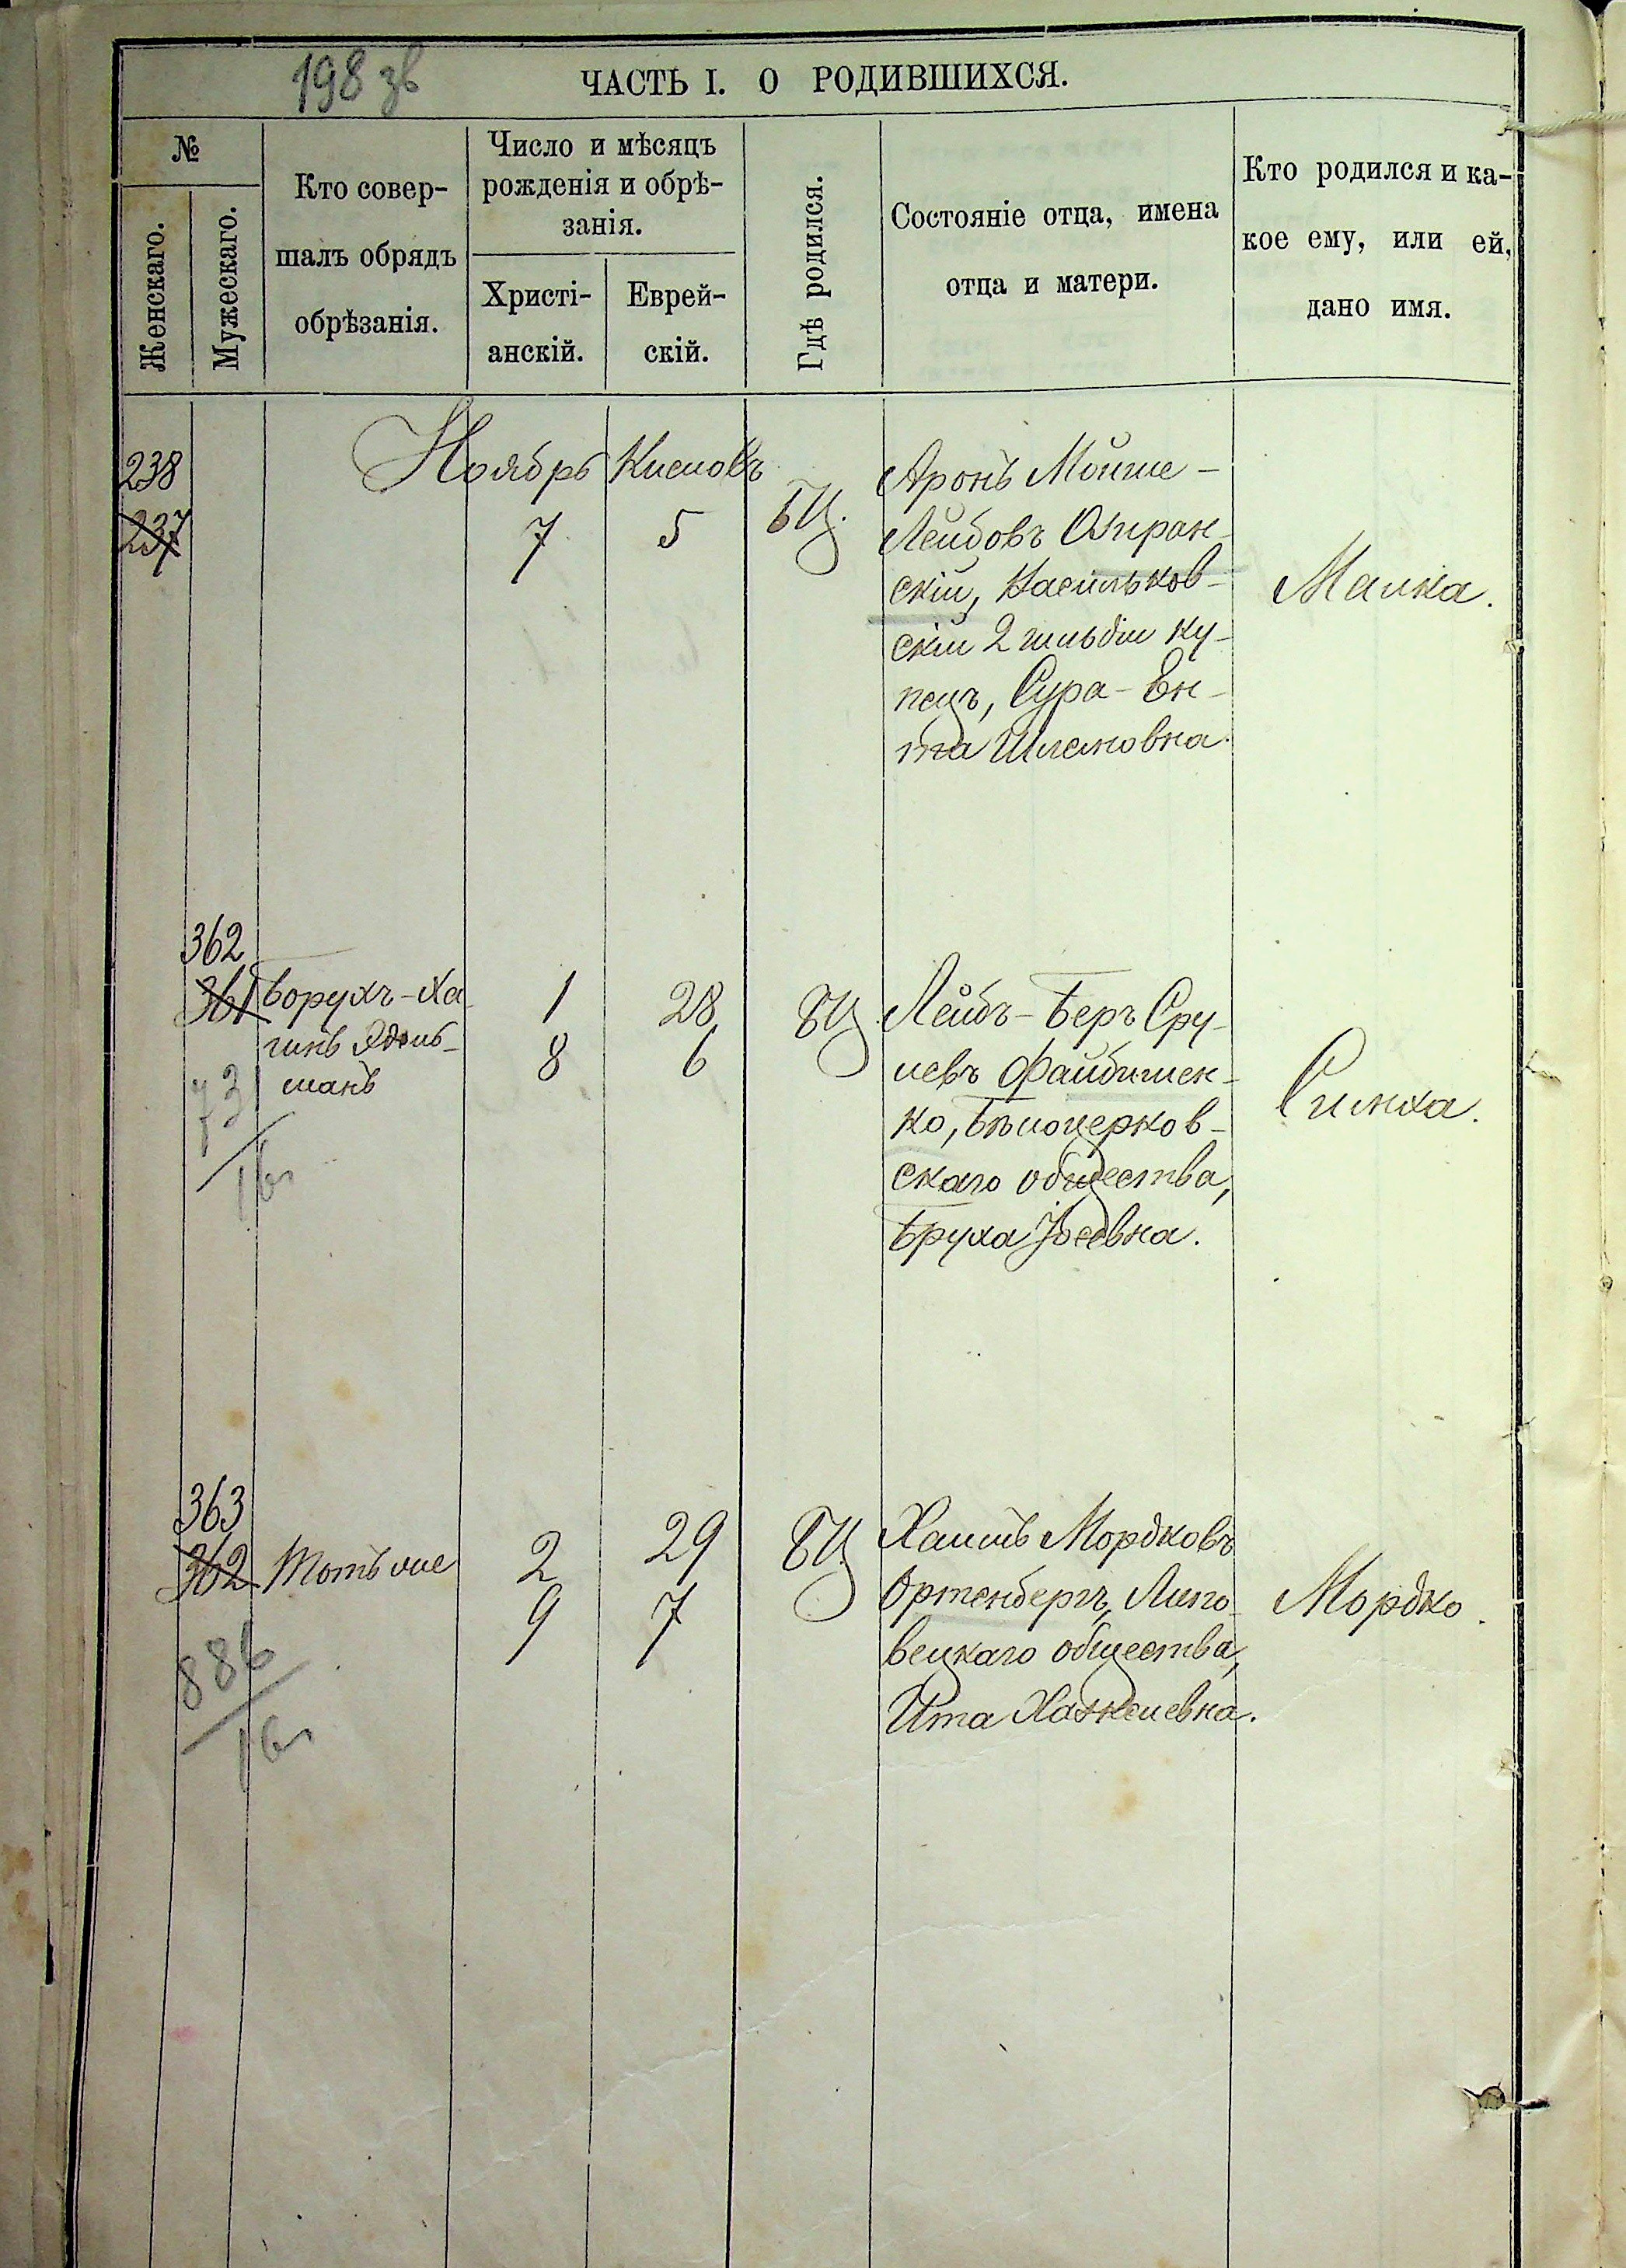 198 зв
ЧАСТЬ I. О РОДИВШИХСЯ.
№
Женскаго.
Мужескаго.
Кто совер-
шалъ обрядъ
обрѣзанія.
Число и мѣсяцъ
рожденія и обрѣ-
занія.
Христі-
анскій.
Еврей-
скій.
Гдѣ родился.
Состояніе отца, имена
отца и матери.
Кто родился и ка-
кое ему, или ей,
дано имя.
Ноябрь Кислевъ
238
237
7
5
БЦ.
Аронъ Мойше-
Лейбовъ
скій, Васильков-
скій 2 гильдіи ку-
пецъ, Сура-Ен-
та Шлемовна.
Малка.
362
361
Борухъ-Ха
имъ
манъ
73
16
1
8
28
6
БЦ.
Лейбъ-Беръ Сру-
левъ Файбишен-
ко, Бѣлоцерков-
скаго общества,
Бруха Іосевна.
Симха.
363
362
Тотъ же
886
16
2
9
29
7
БЦ
Хаимъ Мордковъ
Ортенбергъ, Липо-
вецкаго общества,
Ита Хаскелевна.
Мордко.